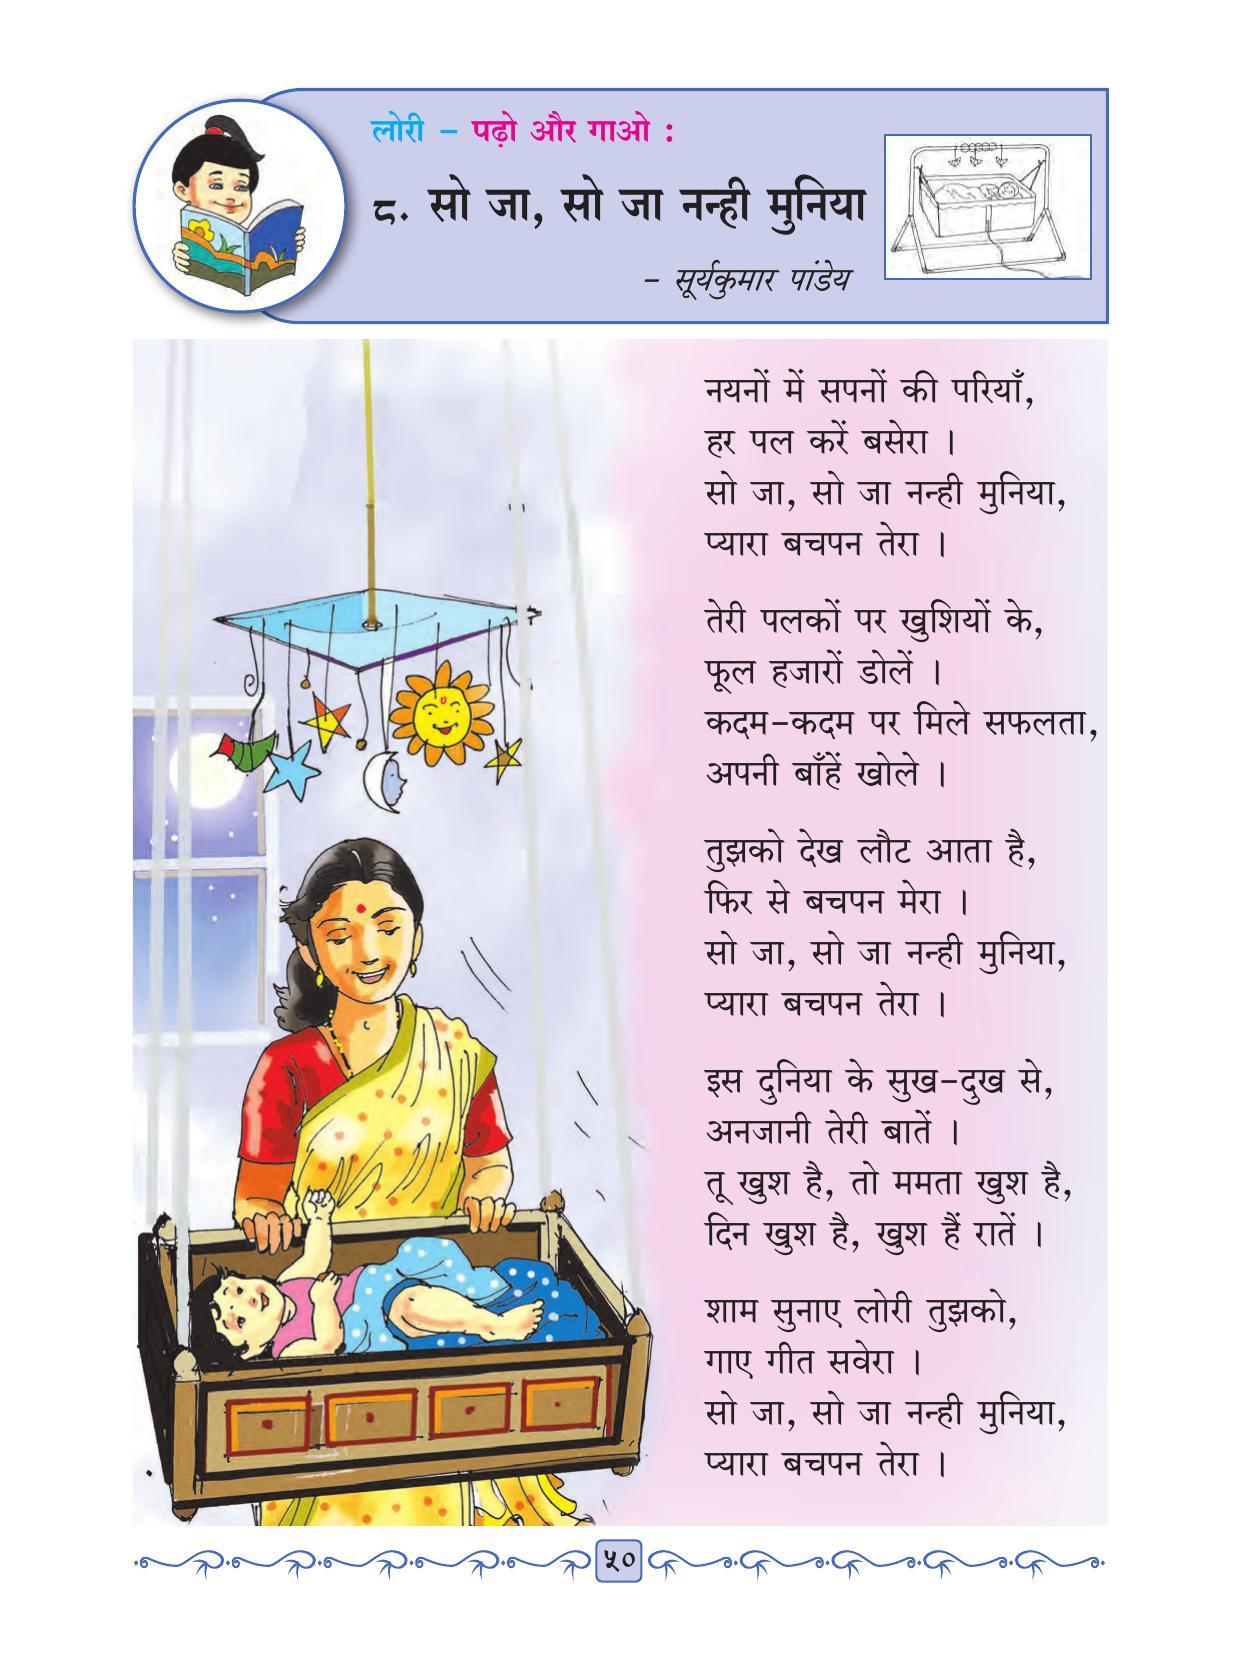 लोरी - पढ़ो और गाओ :
८. सो जा, सो जा नन्ही मुनिया
- सूर्यकुमार पांडेय
नयनों में सपनों की परियाँ,
हर पल करें बसेरा ।
सो जा, सो जा नन्ही मुनिया,
प्यारा बचपन तेरा ।
तेरी पलकों पर खुशियों के,
फूल हजारों डोलें ।
कदम-कदम पर मिले सफलता,
अपनी बाँहें खोले ।
तुझको देख लौट आता है,
फिर से बचपन मेरा ।
सो जा, सो जा नन्ही मुनिया,
प्यारा बचपन तेरा ।
इस दुनिया के सुख-दुख से,
अनजानी तेरी बातें ।
तू खुश है, तो ममता खुश है,
दिन खुश है, खुश हैं रातें ।
शाम सुनाए लोरी तुझको,
गाए गीत सवेरा ।
सो जा, सो जा नन्ही मुनिया,
प्यारा बचपन तेरा ।
५०